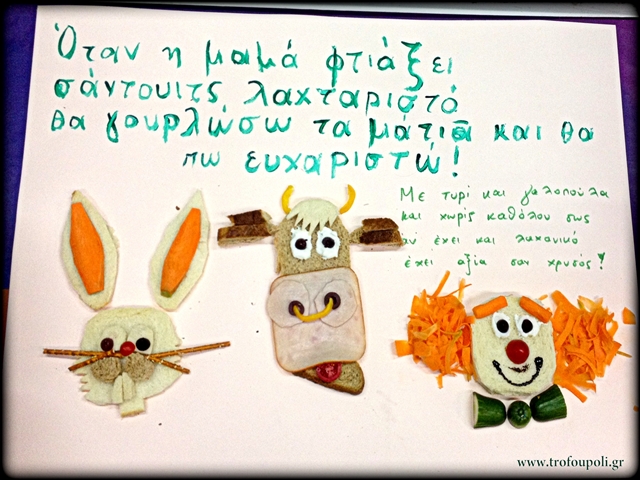 Όταν η μαμά φτιάξει
σάντουιτς λαχταριστό
θα γουρλώσω τα μάτια και θα
πω ευχαριστώ!
Με τυρί και γαλοπούλα
και χωρίς καθόλου σως
αν έχει και λαχανικό
έχει αξία σαν χρυσός!
www.trofoupoli.gr